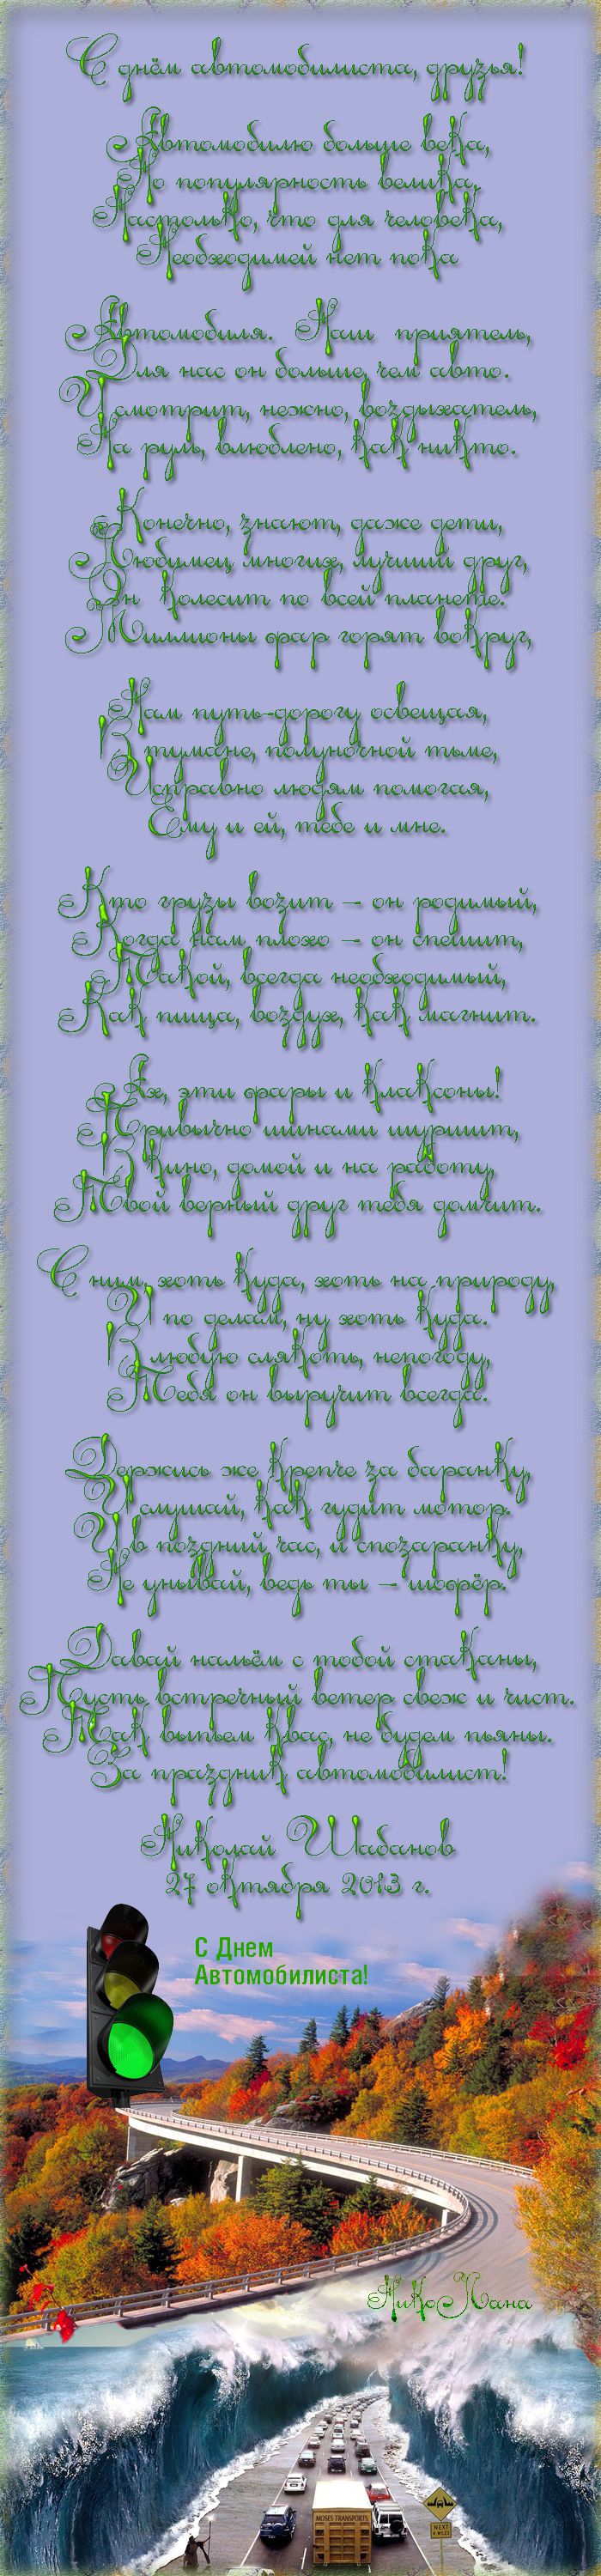 С днём автомобилиста, друзья!
Автомобилю больше века,
Но популярность велика,
Настолько, что для человека,
Необходимей нет пока
Автомобиля. Наш приятель,
Для нас он больше, чем авто.
И смотрит, нежно, воздыхатель,
На руль, влюблено, как никто.
Конечно, знают, даже дети,
Любимец многих, лучший друг,
Он колесит по всей планете.
Миллионы фар горят вокруг,
Нам путь-дорогу освещая,
В тумане, полуночной тьме,
Исправно людям помогая,
Ему и ей, тебе и мне.
Кто грузы возит – он родимый,
Когда нам плохо – он спешит,
Такой, всегда необходимый,
Как пища, воздух, как магнит.
Ах, эти фары и клаксоны!
Привычно шинами шуршит,
В кино, домой и на работу,
Твой верный друг тебя домчит.
С ним, хоть куда, хоть на природу,
И по делам, ну хоть куда.
В любую слякоть, непогоду,
Тебя он выручит всегда.
Держись же крепче за баранку,
И слушай, как гудит мотор.
И в поздний час, и спозаранку,
Не унывай, ведь ты – шофёр.
Давай нальём с тобой стаканы,
Пусть встречный ветер свеж и чист.
Так выпьем квас, не будем пьяны.
За праздник автомобилист!
Николай Шабанов
27 октября 2013 г.
С Днем
Автомобилиста!
НикоЛана
MOSES TRANSPORTS
NEXT